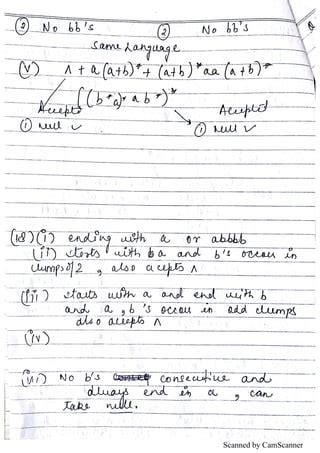 ② No bb's ② No bb's
Same Language
(v) Λ + a (a+b)* + (a+b)* aa (a+b)*
[(b*a)* ab*)*
Accepts Accepted
① null ✓ ① null ✓
(18) (i) ending with a or abbbb
(ii) starts with ba and b's occur in
clumps of 2 , also accepts Λ
(iii) starts with a and end with b
and a , b's occur in odd clumps
also accepts Λ
(iv)
(vi) No b's consecutive and
always end in a , can
take null.
Scanned by CamScanner